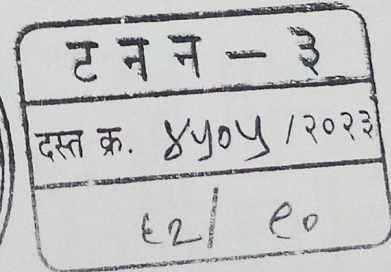 ट न न - ३
दस्त क्र. ४५०५ /२०२३
६२/ ९०